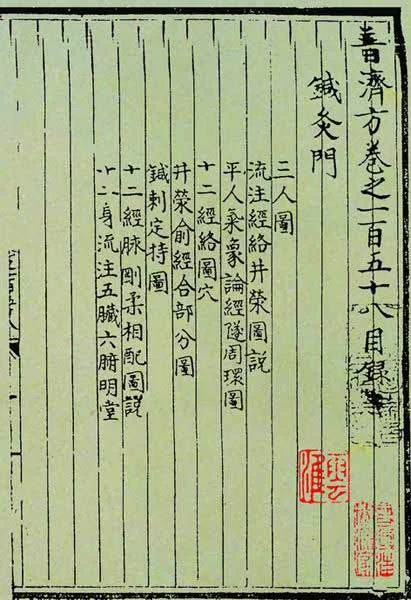 普濟方卷之一百五十八目録
鍼灸門
三人圖
流注經絡井榮圖説
平人氣象論經隧周環圖
十二經絡圖穴
井榮俞經合部分圖
鍼刺定持圖
十二經脉剛柔相配圖説
十二身流注五臟六腑明堂